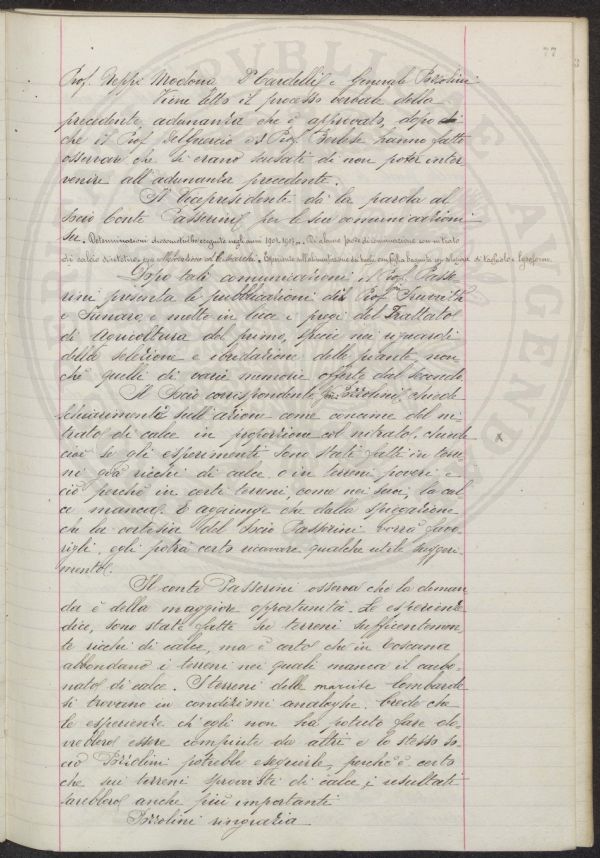 77
Prof. Beppe Modona D. Cardelli e Generale Pozzolini
Viene letto il processo verbale della
precedente adunanza che è approvato, dopo
che il Prof. Del Guercio ed Prof. Berlese hanno fatto
osservare che si erano scusati di non poter inter
venire all'adunanza precedente.
Il Vicepresidente dà la parola al
Socio Conte Passerini per le sue comunicazioni
su. Determinazioni eseguite negli anni 1902, 1903 Di alcune prove di concimazione con nitrato
di calcio Esperienze sull'alimentazione dei
Dopo tali comunicazioni il Prof. Passe
rini presenta le pubblicazioni del Prof.
e Sunaro e mette in luce i pregi del Trattato
di Agricoltura del primo, specie nei riguardi
della selezione e ibridazione delle piante, non
chè quelli di varie memorie offerte dal secondo.
Il Socio corrispondente Pozzolini, chiede
schiarimenti sull'azione come concime del ni
trato di calce in proporzione col nitrato. chiede
cioè se gli esperimenti sono stati fatti in terre
ni già ricchi di calce o in terreni poveri e
ciò perchè in certi terreni, come nei suoi, la cal
ce manca. E aggiunge che dalla spiegazione
che la cortesia del Socio Passerini vorrà favo
rirgli, egli potrà certo ricavare qualche utile suggeri
mento.
Il conte Passerini osserva che la doman
da è della maggiore opportunità. Le esperienze
dice, sono state fatte su terreni sufficentemen
te ricchi di calce, ma è certo che in Toscana
abbondano i terreni nei quali manca il carbo
nato di calce. I terreni delle marcite lombarde
si trovano in condizioni analoghe. Crede che
le esperienze ch'egli non ha potuto fare do
vrebbero essere compiute da altri e lo stesso so
cio Pozzolini potrebbe eseguirle, perchè è certo
che sui terreni sprovvisti di calce, i resultati
sarebbero anche più importanti.
Pozzolini ringrazia